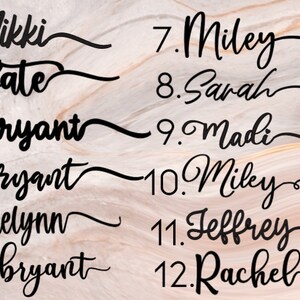 ikki
ate
ryant
ryant
elynn
bryant
7. Miley
8. Sarah
9. Madi
10. Miley
11. Jeffrey
12. Rachel